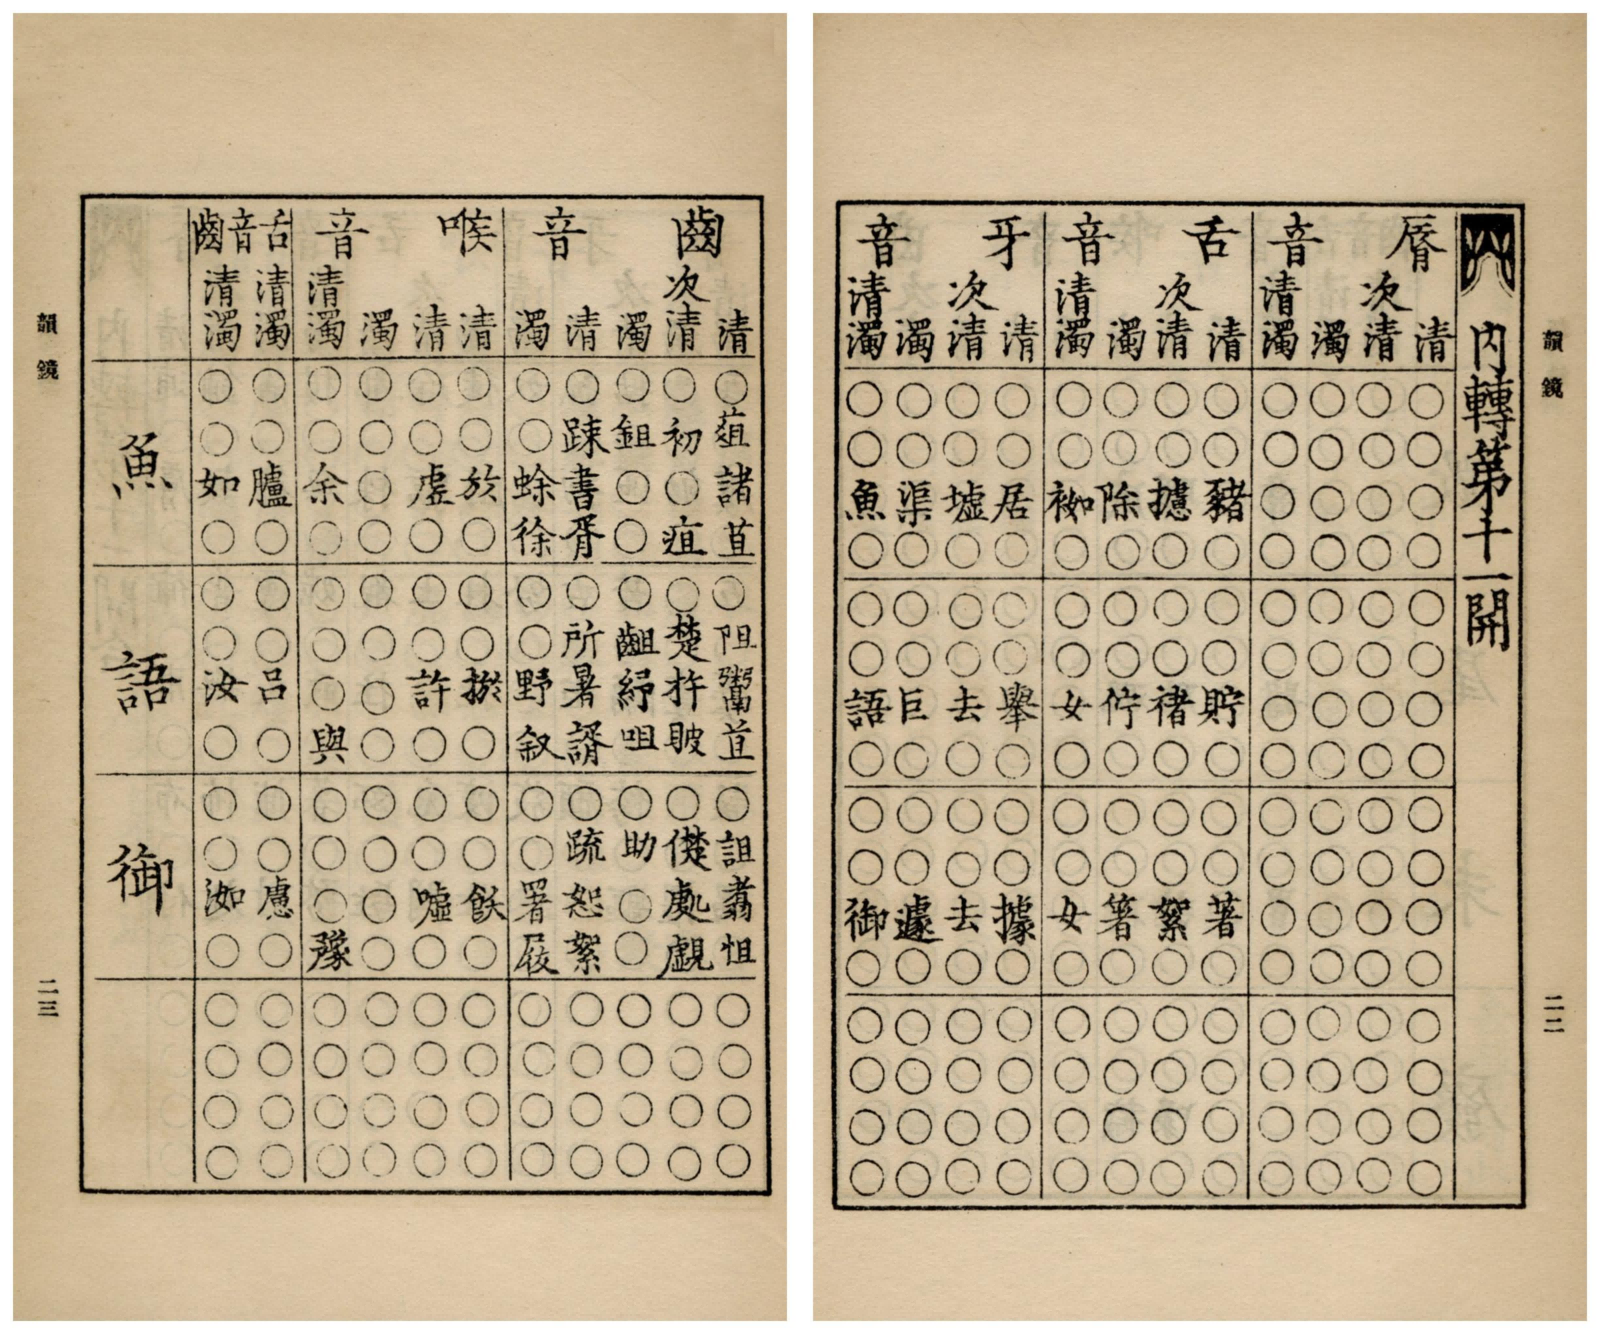 韻鏡
二二
内轉第十一開
脣音
清○○○○○○○○○○○○○○○○
次清○○○○○○○○○○○○○○○○
濁○○○○○○○○○○○○○○○○
清濁○○○○○○○○○○○○○○○○
舌音
清○○豬○○○貯○○○著○○○○○
次清○○攄○○○褚○○○絮○○○○○
濁○○除○○○佇○○○箸○○○○○
清濁○○袽○○○女○○○女○○○○○
牙音
清○○居○○○舉○○○據○○○○○
次清○○墟○○○去○○○去○○○○○
濁○○渠○○○巨○○○遽○○○○○
清濁○○魚○○○語○○○御○○○○○
齒音
清○菹諸苴○阻鬻苴○詛翥怚○○○○
次清○初○疽○楚杵○處覷○○○○
濁○鉏○○○齟紓咀○助○○○○○○
清○踈書胥○所暑諝○疏恕絮○○○○
濁○○蜍徐○○野叙○○署○○○○
喉音
清○○於○○○○○○飫○○○○○
清○○虗○○○許○○○嘘○○○○○
濁○○○○○○○○○○○○○○○○
清濁○○余○○○○與○○○豫○○○○
舌音齒
清濁○○臚○○○呂○○○慮○○○○○
清濁○○如○○○汝○○○洳○○○○○
魚
語
御
韻鏡
二三